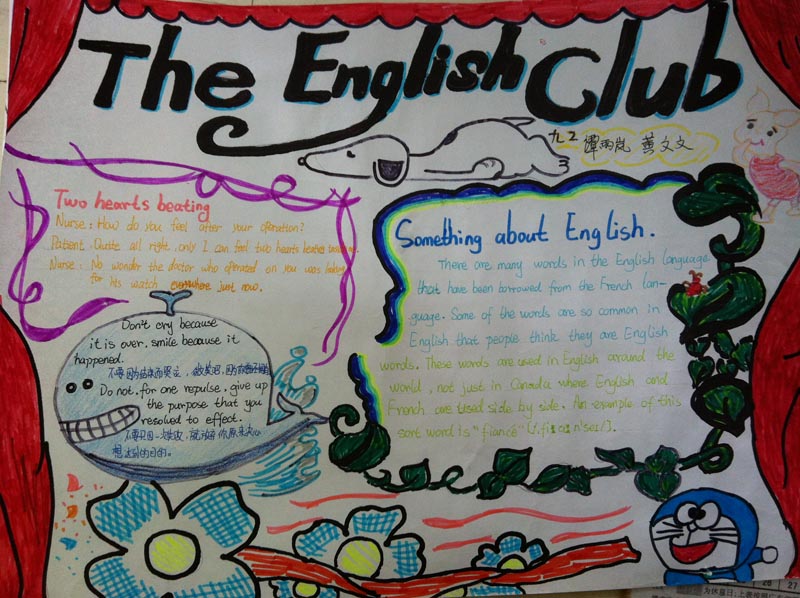 The English Club
九2 谭 岚 黄文文
Two hearts beating
Nurse: How do you feel after your operation?
Patient: Quite all right, only I can feel two hearts
Nurse: No wonder the doctor who operated on you was
for his watch everywhere just now.
Don't cry because
it is over, smile because it
happened.
不要因为结束而哭
Do not, for one repulse, give up
the purpose that you
resolved to effect.
不要只因一次失败,就放弃你原来决心
想达到的目的。
Something about English.
There are many words in the English language
that have been borrowed from the French lan-
guage. Some of the words are so common in
English that people think they are English
words. These words are used in English around the
world, not just in Canada where English and
French are used side by side. An example of this
sort word is "fiancé"
25 27